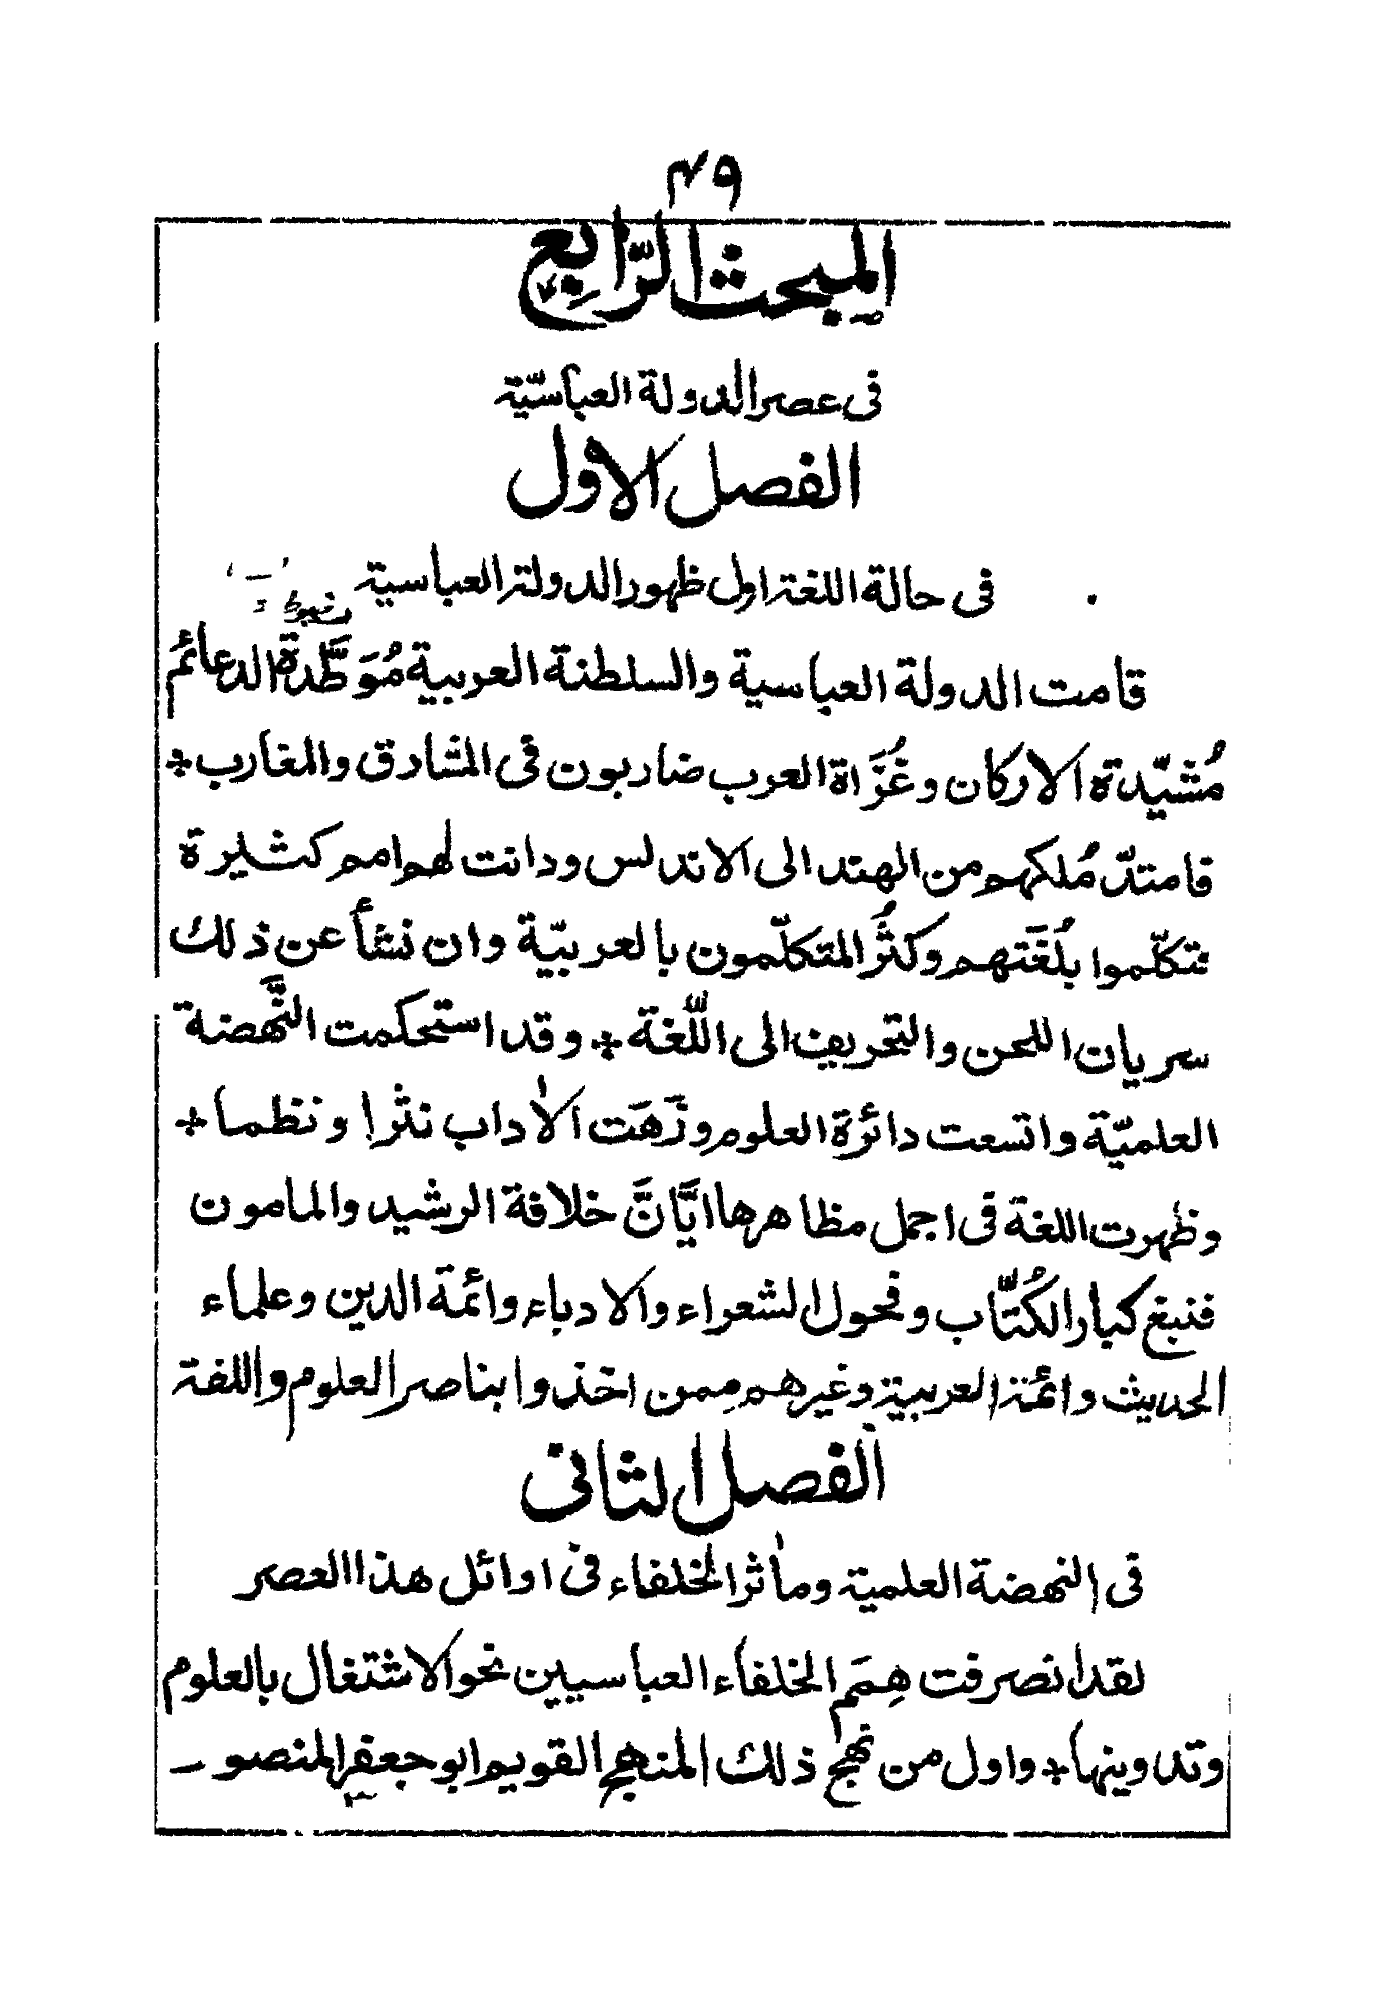 ٤٩
المبحث الرّابع
فى عصر الدولة العباسّية
الفصل الاول
فى حالة اللغة اول ظهور الدولة العباسية
قامت الدولة العباسية والسلطنة العربية مُوَطَّدة الدعائم
مُشيّدة الاركان وغُزَاة العرب ضاربون فى المشارق والمغارب ❊
فامتدّ مُلكهم من الهند الى الاندلس ودانت لهم امم كثيرة
تكلّموا بلُغَتهم وكثُر المتكلّمون بالعربيّة وان نشأ عن ذلك
سريان اللحن والتحريف الى اللّغة ❊ وقد استحكمت النَّهضة
العلميّة واتسعت دائرة العلوم وزَهَت الاٰداب نثرا ونظما ❊
وظهرت اللغة فى اجمل مظاهرها ايَّانَّ خلافة الرشيد والمامون
فنبغ كبار الكُتّاب وفحول الشعراء والادباء وائمة الدين وعلماء
الحديث وائمة العربية وغيرهم مِمن اخذوا بناصر العلوم واللغة
الفصل الثانى
فى النهضة العلمية وماٰثر الخلفاء فى اوائل هذا العصر
لقد انصرفت هِمَم الخلفاء العباسيين نحو الاشتغال بالعلوم
وتدوينها ❊ واول من نهج ذلك المنهج القويم ابو جعفر المنصور